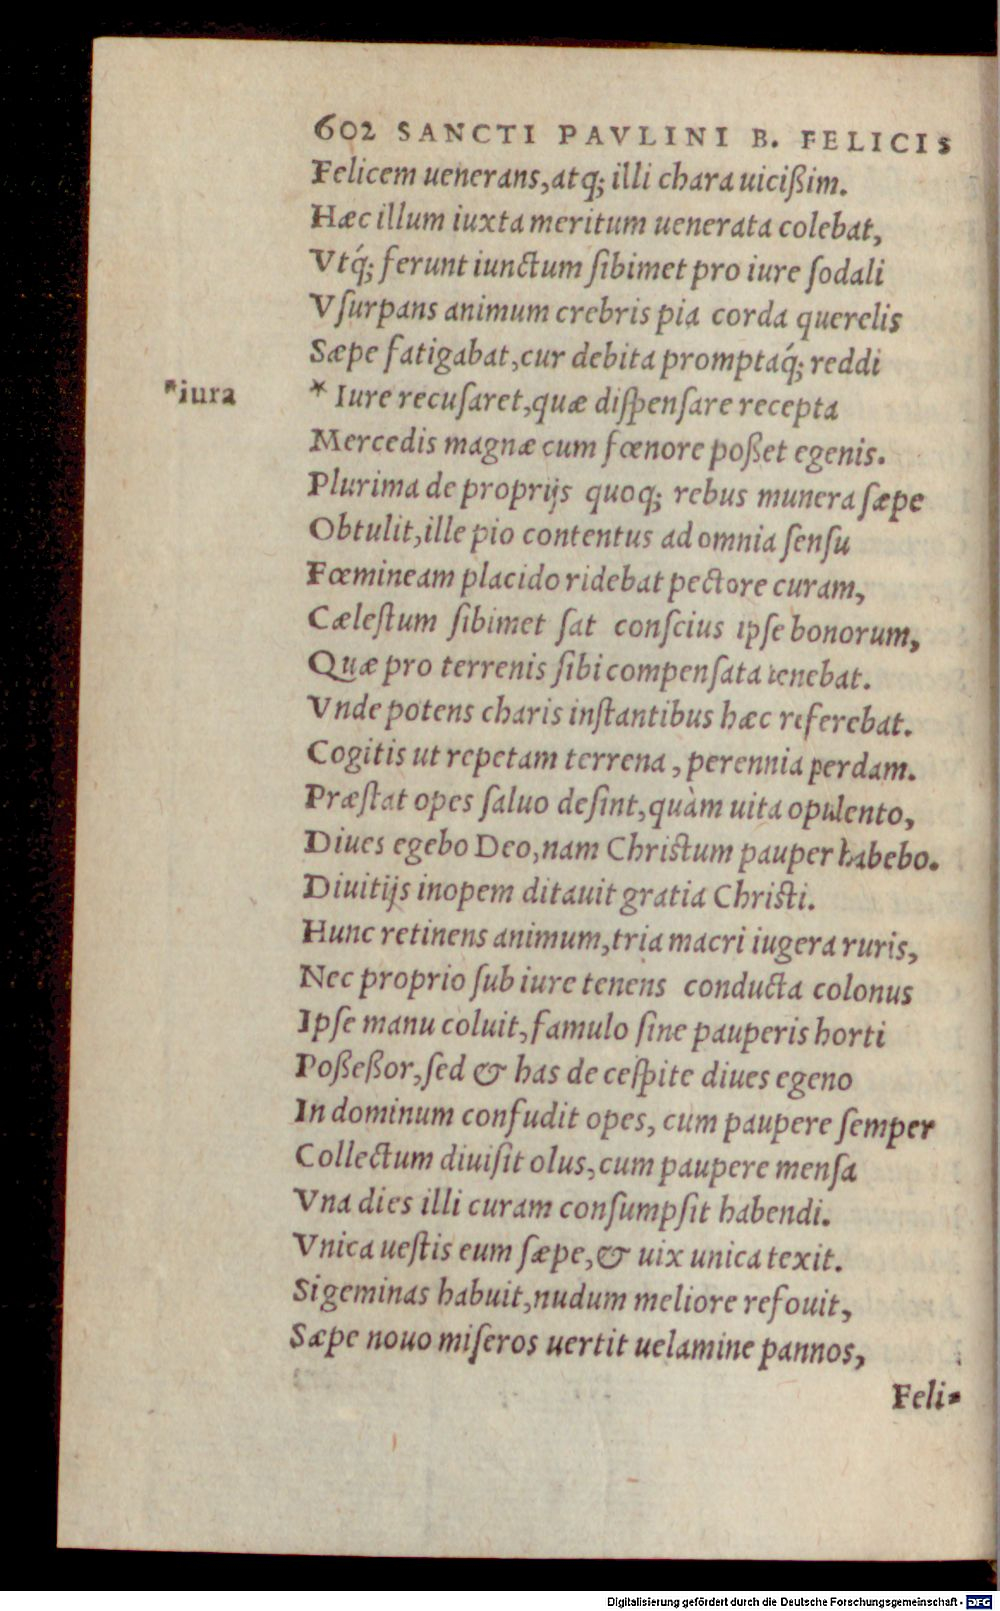 602 SANCTI PAVLINI B. FELICIS
Felicem uenerans, atq; illi chara uicißim.
Hæc illum iuxta meritum uenerata colebat,
Vtq́; ferunt iunctum ſibimet pro iure ſodali
Vſurpans animum crebris pia corda querelis
Sæpe fatigabat, cur debita promptaq́; reddi
*iura * Iure recuſaret, quæ diſpenſare recepta
Mercedis magnæ cum fœnore poßet egenis.
Plurima de proprijs quoq; rebus munera ſæpe
Obtulit, ille pio contentus ad omnia ſenſu
Fœmineam placido ridebat pectore curam,
Cæleſtum ſibimet ſat conſcius ipſe bonorum,
Quæ pro terrenis ſibi compenſata tenebat.
Vnde potens charis inſtantibus hæc referebat.
Cogitis ut repetam terrena, perennia perdam.
Præſtat opes ſaluo deſint, quàm uita opulento,
Diues egebo Deo, nam Christum pauper habebo.
Diuitijs inopem ditauit gratia Christi.
Hunc retinens animum, tria macri iugera ruris,
Nec proprio ſub iure tenens conducta colonus
Ipſe manu coluit, famulo ſine pauperis horti
Poßeßor, ſed & has de ceſpite diues egeno
In dominum confudit opes, cum paupere ſemper
Collectum diuiſit olus, cum paupere menſa
Vna dies illi curam conſumpſit habendi.
Vnica ueſtis eum ſæpe, & uix unica texit.
Si geminas habuit, nudum meliore refouit,
Sæpe nouo miſeros uertit uelamine pannos,
Feli-
Digitalisierung gefördert durch die Deutsche Forschungsgemeinschaft - DFG